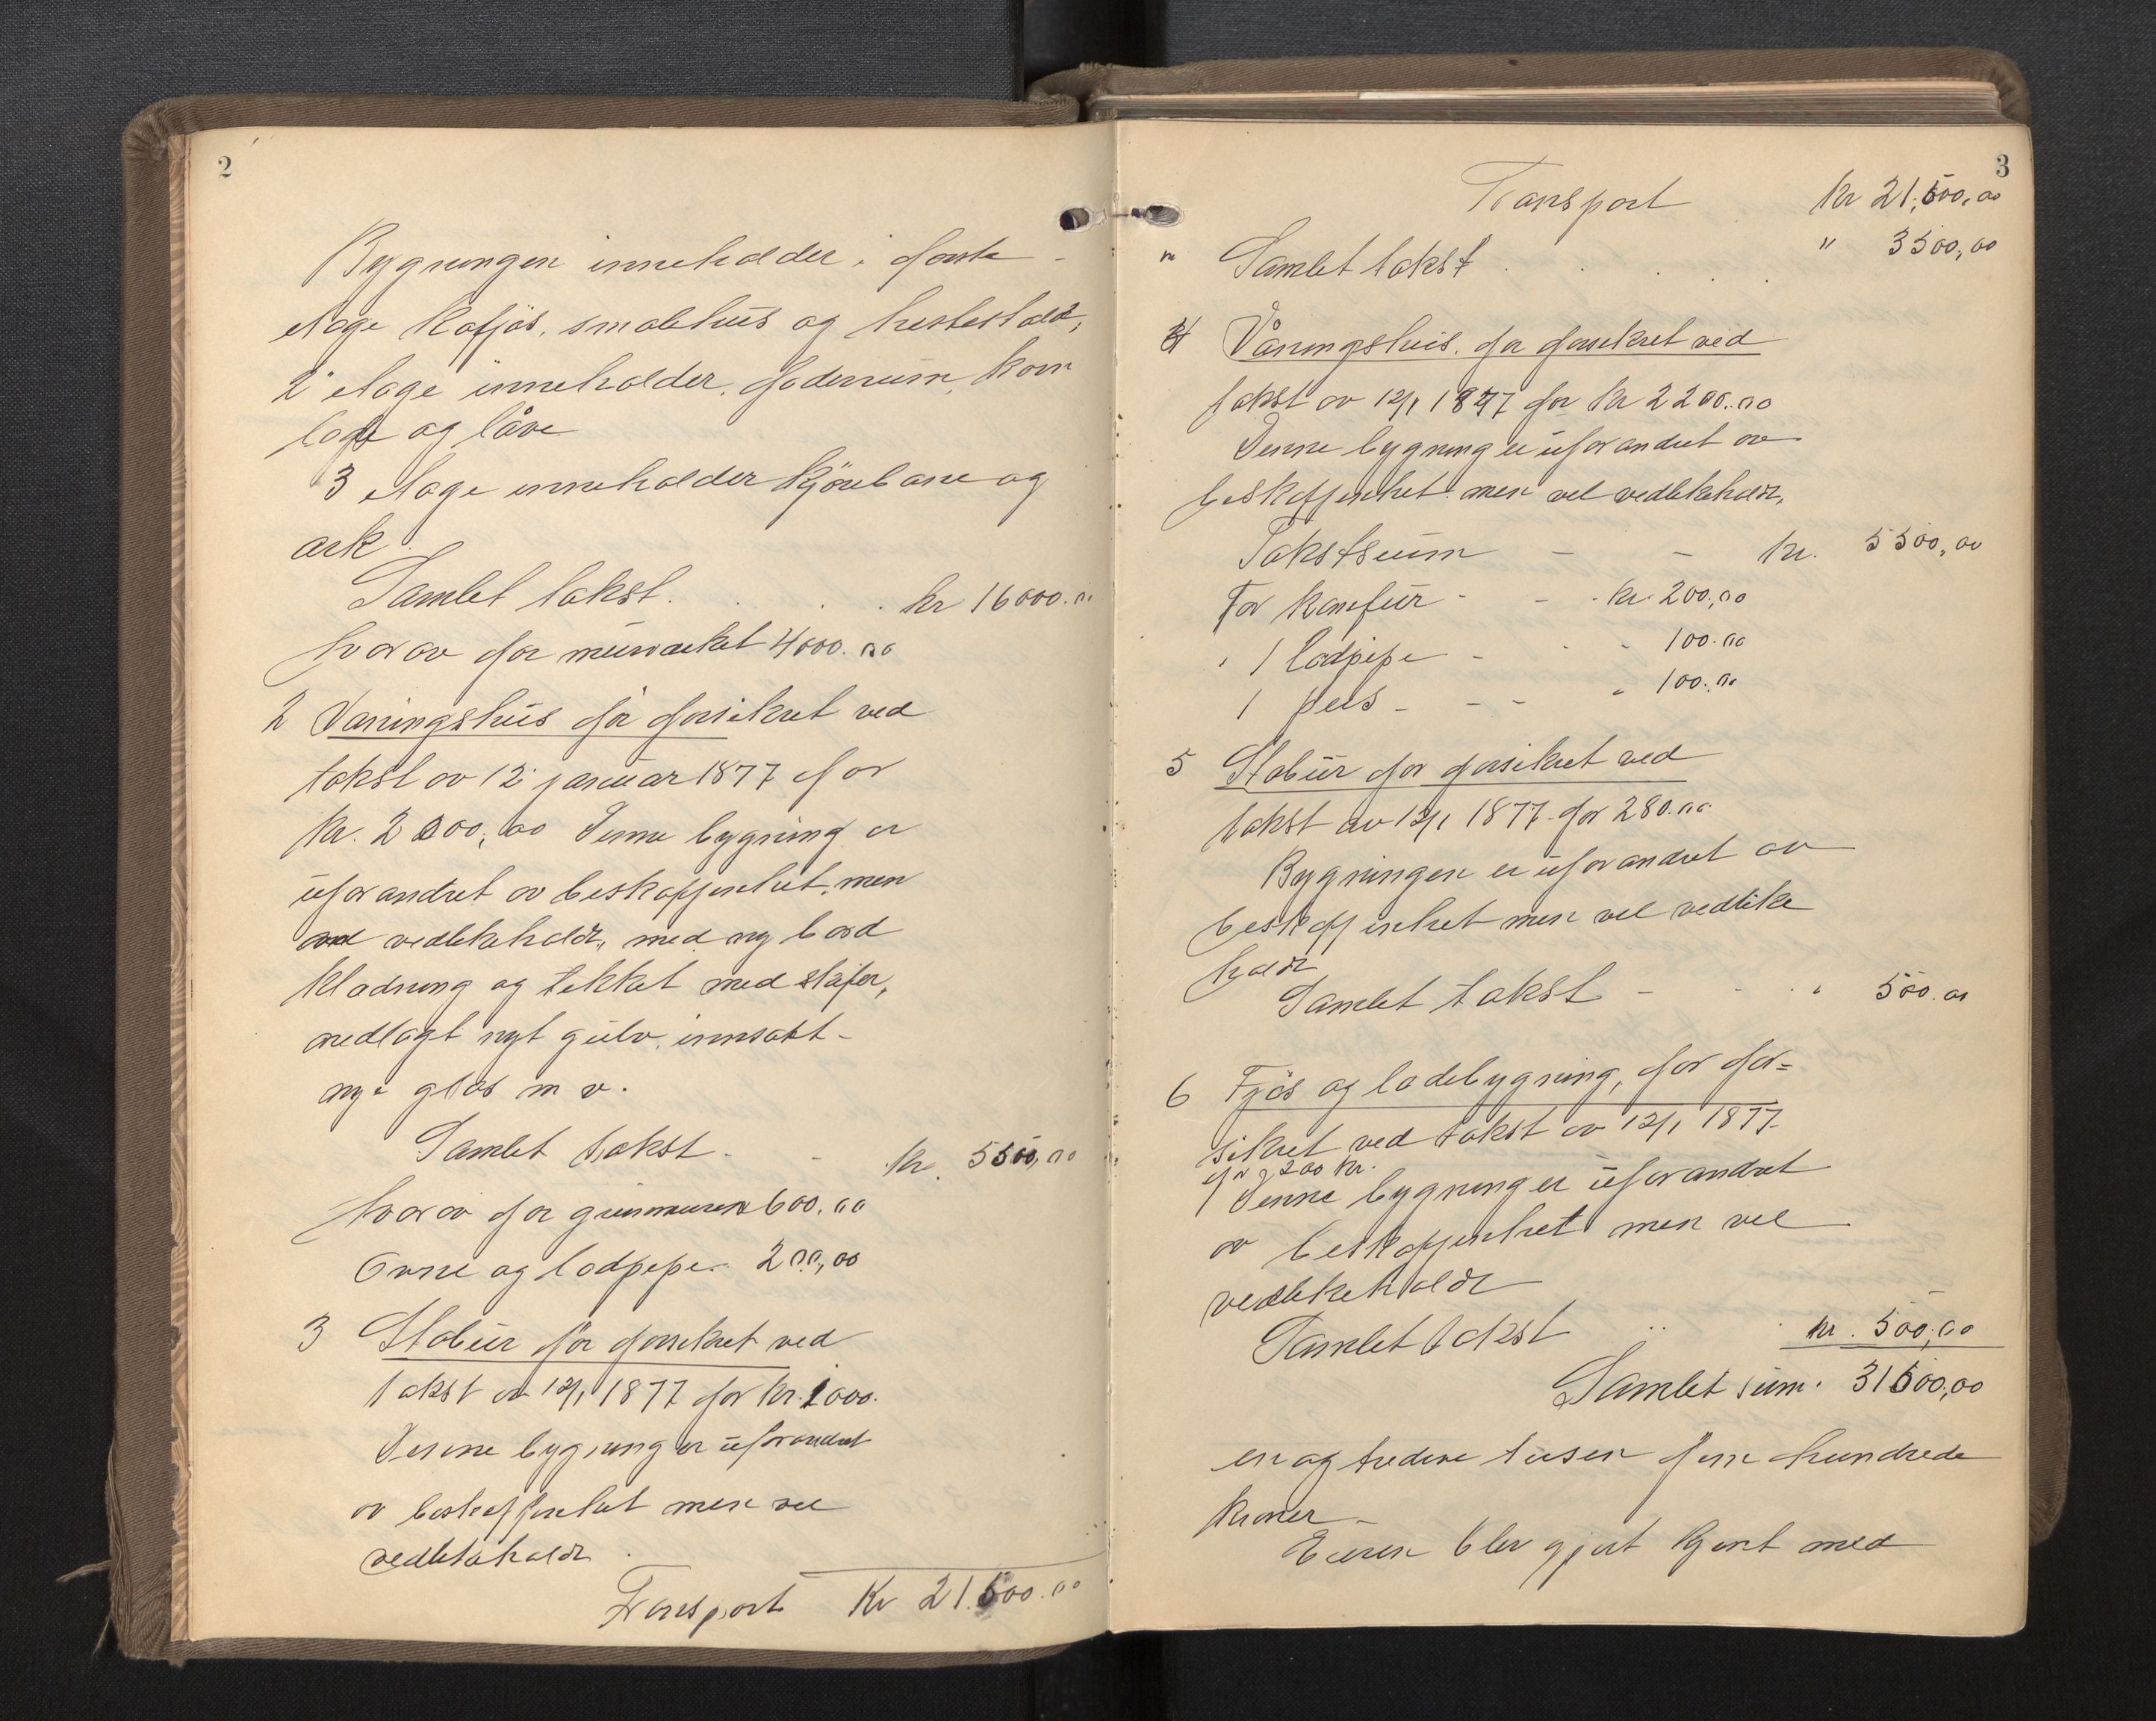 2
Bygningen inneholder i første
etage kofjøs, smalehus og hestestald,
2 etage inneholder foderrum, korn
loge og låve
3 etage inneholder kjørebane og
ark.
Samlet takst. kr 16000.00
hvorav for murværket 4000.00
2 Vaningshus før forsikret ved
takst av 12 januar 1877 for
kr. 2000,00 Denne bygning er
uforandret av beskaffenhet, men
vedlikeholdt, med ny bord
klædning og tekket med skifer,
nedlagt nyt gulv, innsatt
nye glas m v.
Samlet takst - - kr. 5500,00
hvorav for grunnmuren 600,00
Ovne og lodpipe. 200,00
3 Stabur før forsikret ved
takst av 12/1 1877 for kr. 1000.
Denne bygning er uforandret
av beskaffenhet men vel
vedlikeholdt.
Transport Kr 21.500.00
3
Transport kr 21,500,00
Samlet takst . . . " 3500,00
4 Våningshus. før forsikret ved
takst av 12/1 1877 for kr 2200.00
Denne bygning er uforandret av
beskaffenhet men vel vedlikeholdt,
Takstsum - - kr. 5500,00
For komfur - - kr. 200,00
1 lodpipe - - - 100.00
1 peis - - - 100.00
5 Stabur før forsikret ved
takst av 12/1 1877 for 280.00
Bygningen er uforandret av
beskaffenhet men vel vedlike
holdt
Samlet takst - - 500.00
6 Fjøs og ladebygning, før for=
sikret ved takst av 12/1 1877
for 200 kr.
Denne bygning er uforandret
av beskaffenhet men vel
vedlikeholdt
Samlet takst kr. 500,00
Samlet sum. 31500,00
en og tredive tusen fem hundrede
kroner -
Eieren blev gjort kjent med